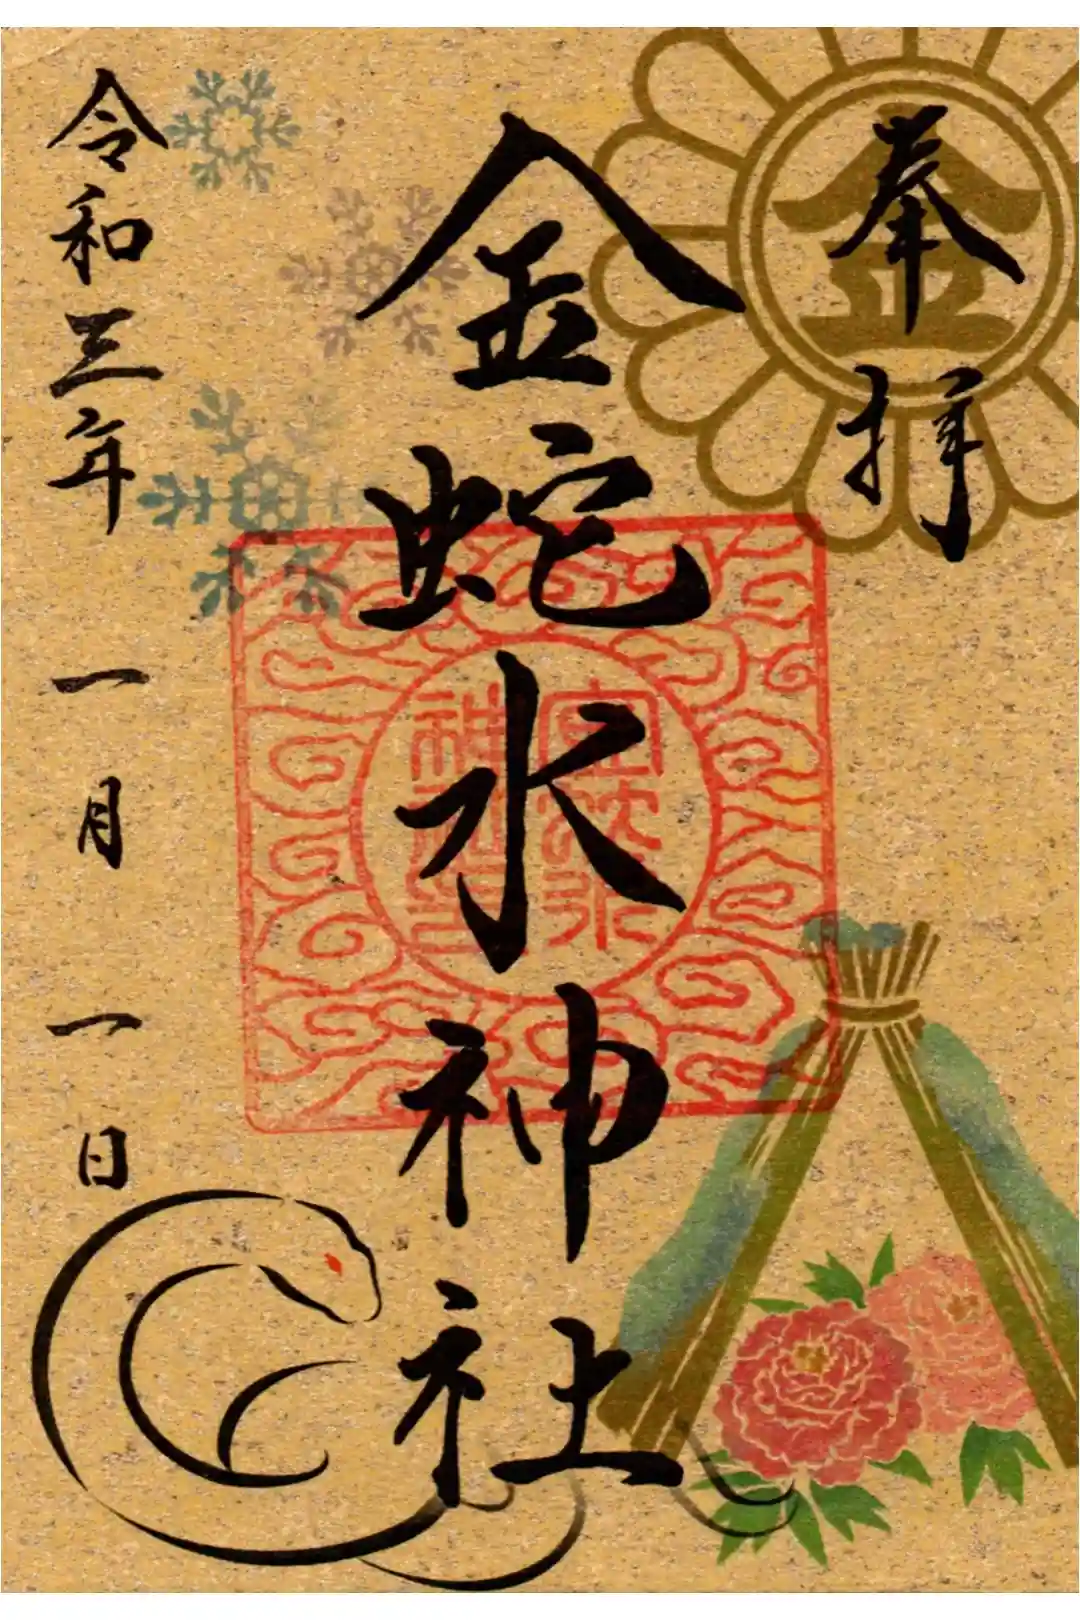 奉拝
金
金蛇水神社
金蛇水
神社
令和三年 一月 一日